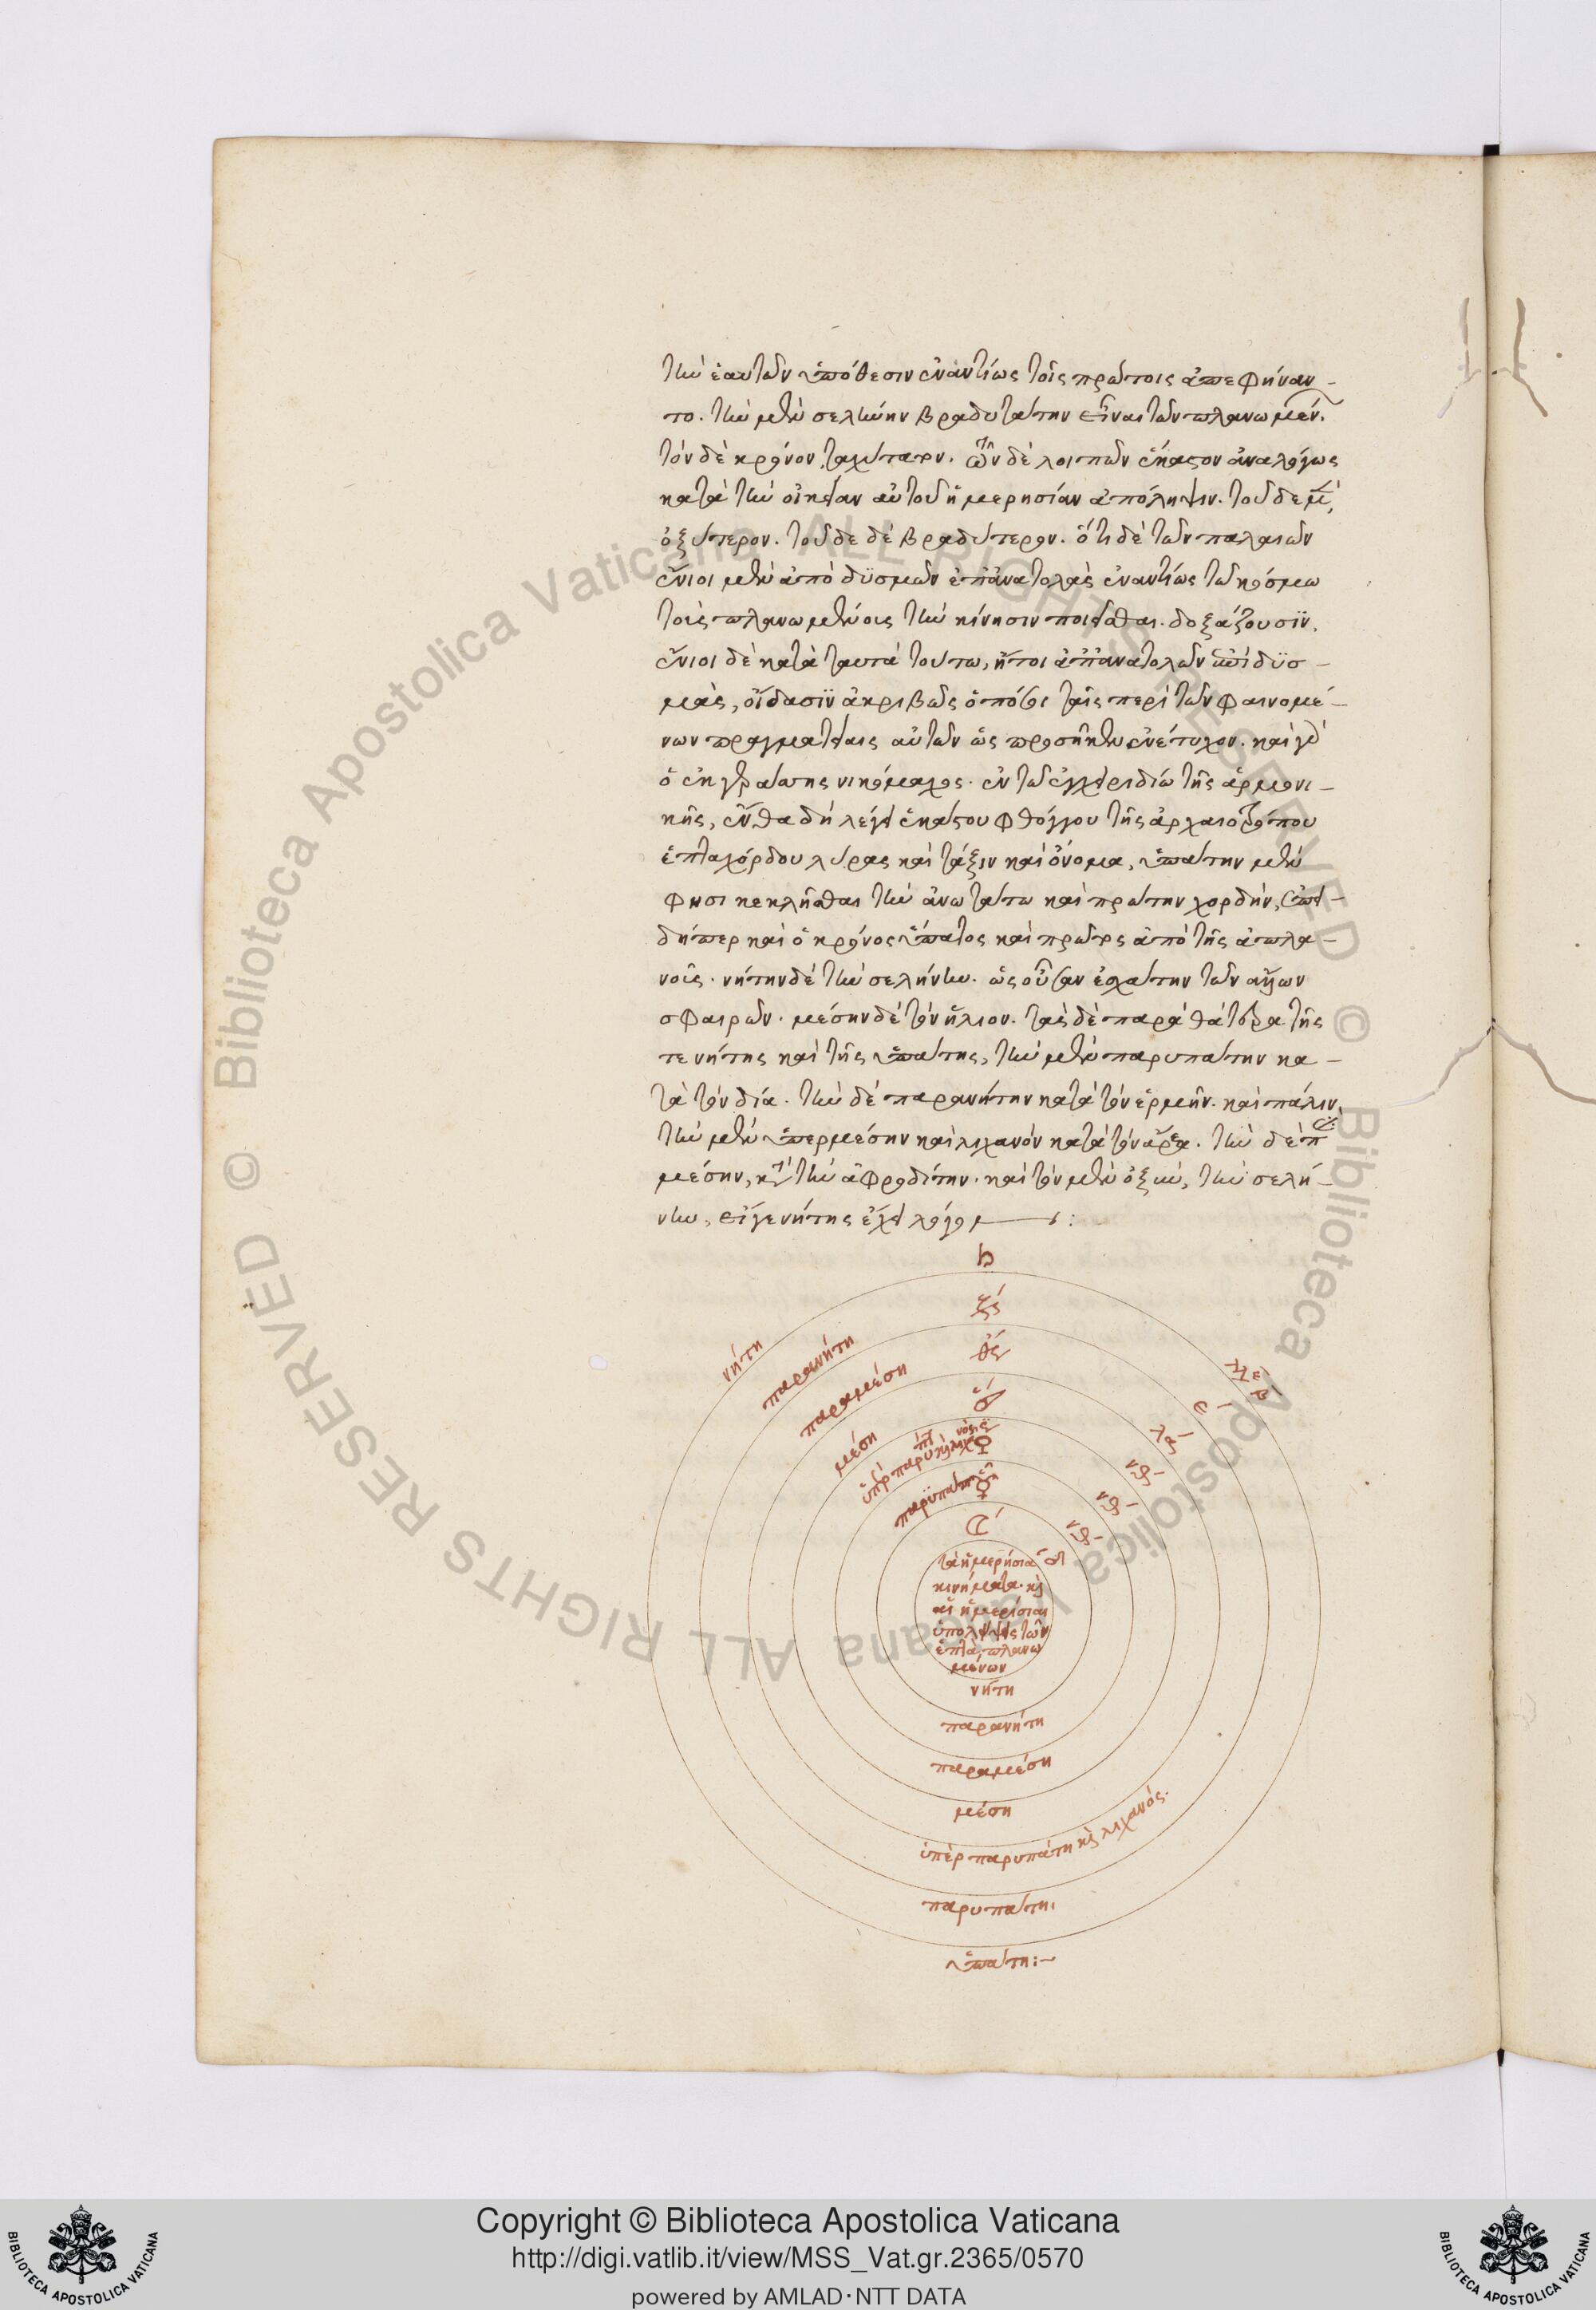 τὴν ἑαυτῶν ὑπόθεσιν ἐναντίως τοῖς πρώτοις ἀπεφήναν-
το. τὴν μὲν σελήνην βραδυτάτην εἶναι τῶν πλανωμέν.
τὸν δὲ κρόνον, ταχύτατον. τῶν δὲ λοιπῶν ἕκαστον ἀναλόγως
κατὰ τὴν οἰκείαν αὐτοῦ ἡμερησίαν ἀπόληψιν. τοῦδε μὲν,
ὀξύτερον. τοῦδε δὲ βραδύτερον. ὅτι δὲ τῶν παλαιῶν
ἔνιοι μὲν ἀπὸ δϋσμῶν ἐπ' ἀνατολὰς ἐναντίως τῷ κόσμω
τοῖς πλανωμένοις τὴν κίνησιν ποιεῖσθαι. δοξάζουσϊν.
ἔνιοι δὲ κατὰ ταυτὰ τούτω, ἤτοι ἀπ' ἀνατολῶν ἐπὶ δϋσ-
μὰς, οἴδασϊν ἀκριβῶς ὁπόσοι ταῖς περὶ τῶν φαινομέ-
νων πραγματείαις αὐτῶν ὡς προσῆκεν ἐνέτυχον. καὶ γὰρ
ὁ ἐκ γεράσης νικόμαχος. ἐν τῷ ἐγχειριδίω τῆς ἁρμονι-
κῆς, ἔνθα δὴ λέγει ἑκάστου φθόγγου τῆς ἀρχαιοτρόπου
ἑπταχόρδου λύρας καὶ τάξιν καὶ ὄνομα, ὑπάτην μὲν
φησι κεκλῆσθαι τὴν ἀνωτάτω καὶ πρώτην χορδήν, ἐπει-
δήπερ καὶ ὁ κρόνος ὕπατος καὶ πρῶτος ἀπὸ τῆς ἀπλα-
νοῦς. νήτην δὲ τὴν σελήνην. ὡς οὖσαν ἐσχάτην τῶν ἄλλων
σφαιρῶν. μέσην δὲ τὸν ἥλιον. τὰς δὲ παρὰ θάτερα τῆς
τε νήτης καὶ τῆς ὑπάτης, τὴν μὲν παρυπάτην κα-
τὰ τὸν δία. τὴν δὲ παρανήτην κατὰ τὸν ἑρμῆν. καὶ πάλιν,
τὴν μὲν ὑπερμέσην καὶ λιχανὸν κατὰ τὸν ἄρεα. τὴν δὲ
μέσην, κατὰ τὴν ἀφροδίτην. καὶ τὸν μὲν ὀξὺν, τὴν σελή-
νην, εἴγε νήτης ἔχει λόγον :
♄
νήτη
παρανήτη
παραμέση
μέση
παρϋπάτη
τὰ ἡμερήσια
κινήματα. καὶ
αἱ ἡμερίσιαι
ὑπολείψεις τῶν
ἑπτὰ πλανω
μένων
νήτη
παρανήτη
παραμέση
μέση
ὑπὲρ παρυπάτη καὶ λιχανός.
παρυπάτη.
ὑπάτη:~
Copyright © Biblioteca Apostolica Vaticana
http://digi.vatlib.it/view/MSS_Vat.gr.2365/0570
powered by AMLAD·NTT DATA